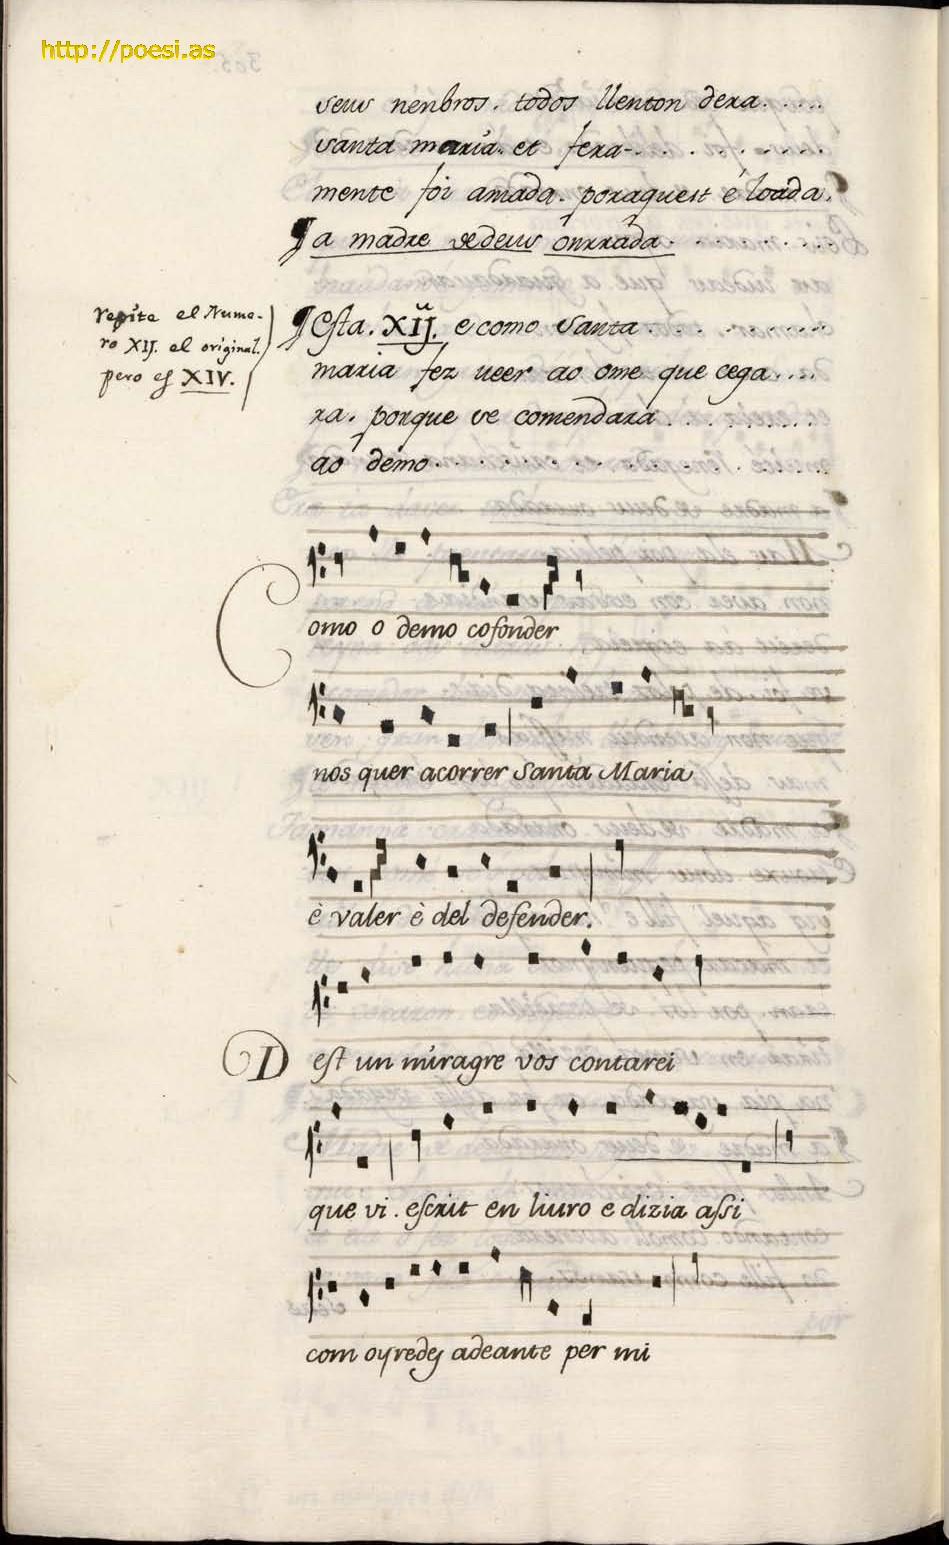 http://poesi.as
seus nenbros. todos llenton dera.....
santa maria. et fera-.............
mente foi amada. poraquest é loada.
a madre de deus onrrada...........
repite el Nume-
ro XIJ. el original.
pero es XIV.
Esta. XIJ. e como Santa.............
maria fez ueer ao ome que cega....
ra. porque se comendara..........
ao demo..........................
Como o demo cofonder
nos quer acorrer Santa Maria
è valer è del defender.
Dest un miragre vos contarei
que vi. escrit en liuro e dizia assi
com oyredes adeante per mi